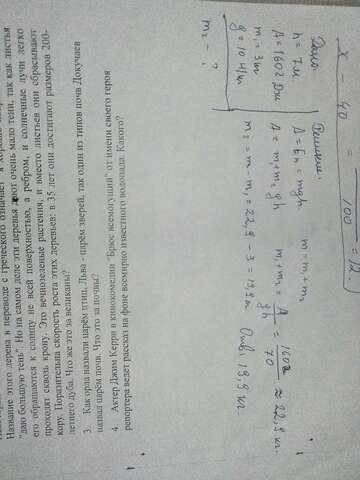 x - 40 = 100 = 12
Дано:
h = 7 м
A = 1602 Дж
m₁ = 3 кг
g = 10 Н/кг
m₂ - ?
Решение:
A = Eп = mgh m = m₁ + m₂
A = m₁ + m₂ g h m₁ + m₂ = A / gh = 1602 / 70 ≈ 22,9 кг
m₂ = m - m₁ = 22,9 - 3 = 19,9 кг Отв: 19,9 кг.
Название этого дерева в переводе с греческого означает "я хорошо
"даю большую тень". Но на самом деле эти деревья дают очень мало тени, так как листья
его обращаются к солнцу не всей поверхностью, а ребром, и солнечные лучи легко
проходят сквозь крону. Это вечнозеленые растения, и вместо листьев они сбрасывают
кору. Поразительна скорость роста этих деревьев: в 35 лет они достигают размеров 200-
летнего дуба. Что же это за великаны?
3. Как орла назвали царём птиц, Льва - царём зверей, так один из типов почв Докучаев
назвал царём почв. Что это за почвы?
4. Актер Джим Керри в кинокомедии "Брюс всемогущий" от имени своего героя
репортера ведет рассказ на фоне всемирно известного водопада. Какого?